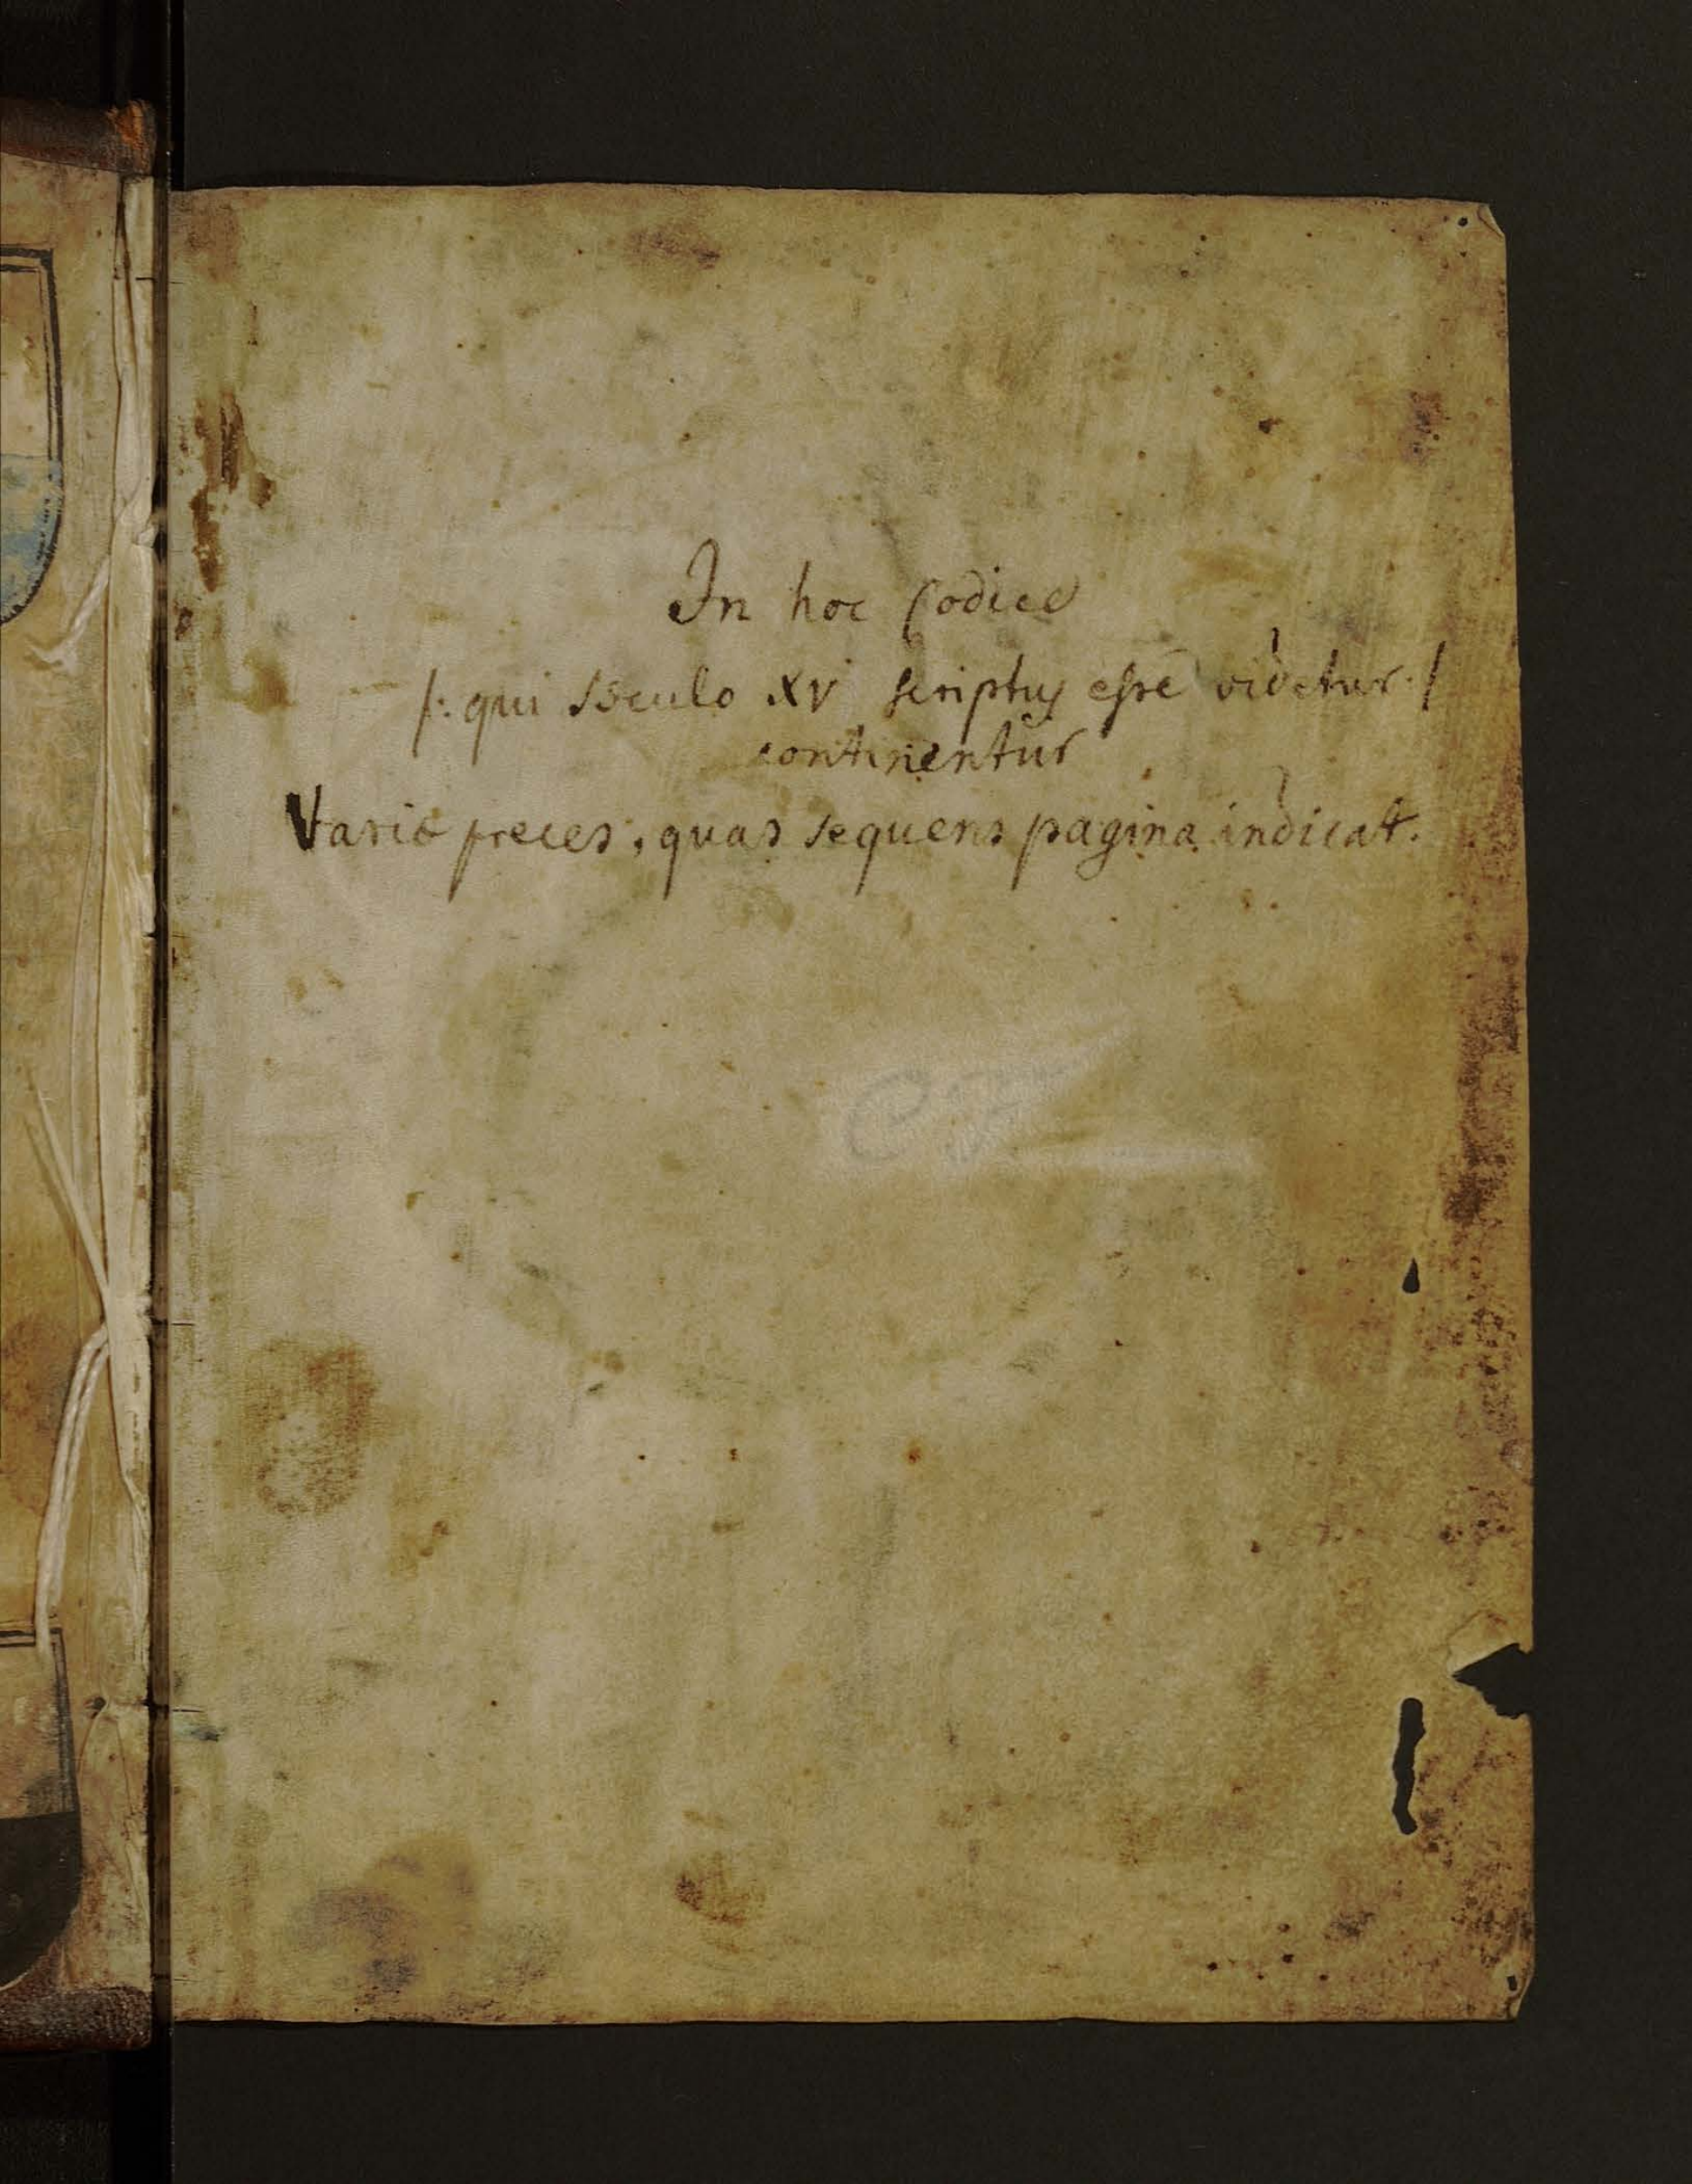 In hoc Codice
/: qui sæculo XV scriptus esse videtur :/
continentur
Variæ preces, quas sequens pagina indicat.